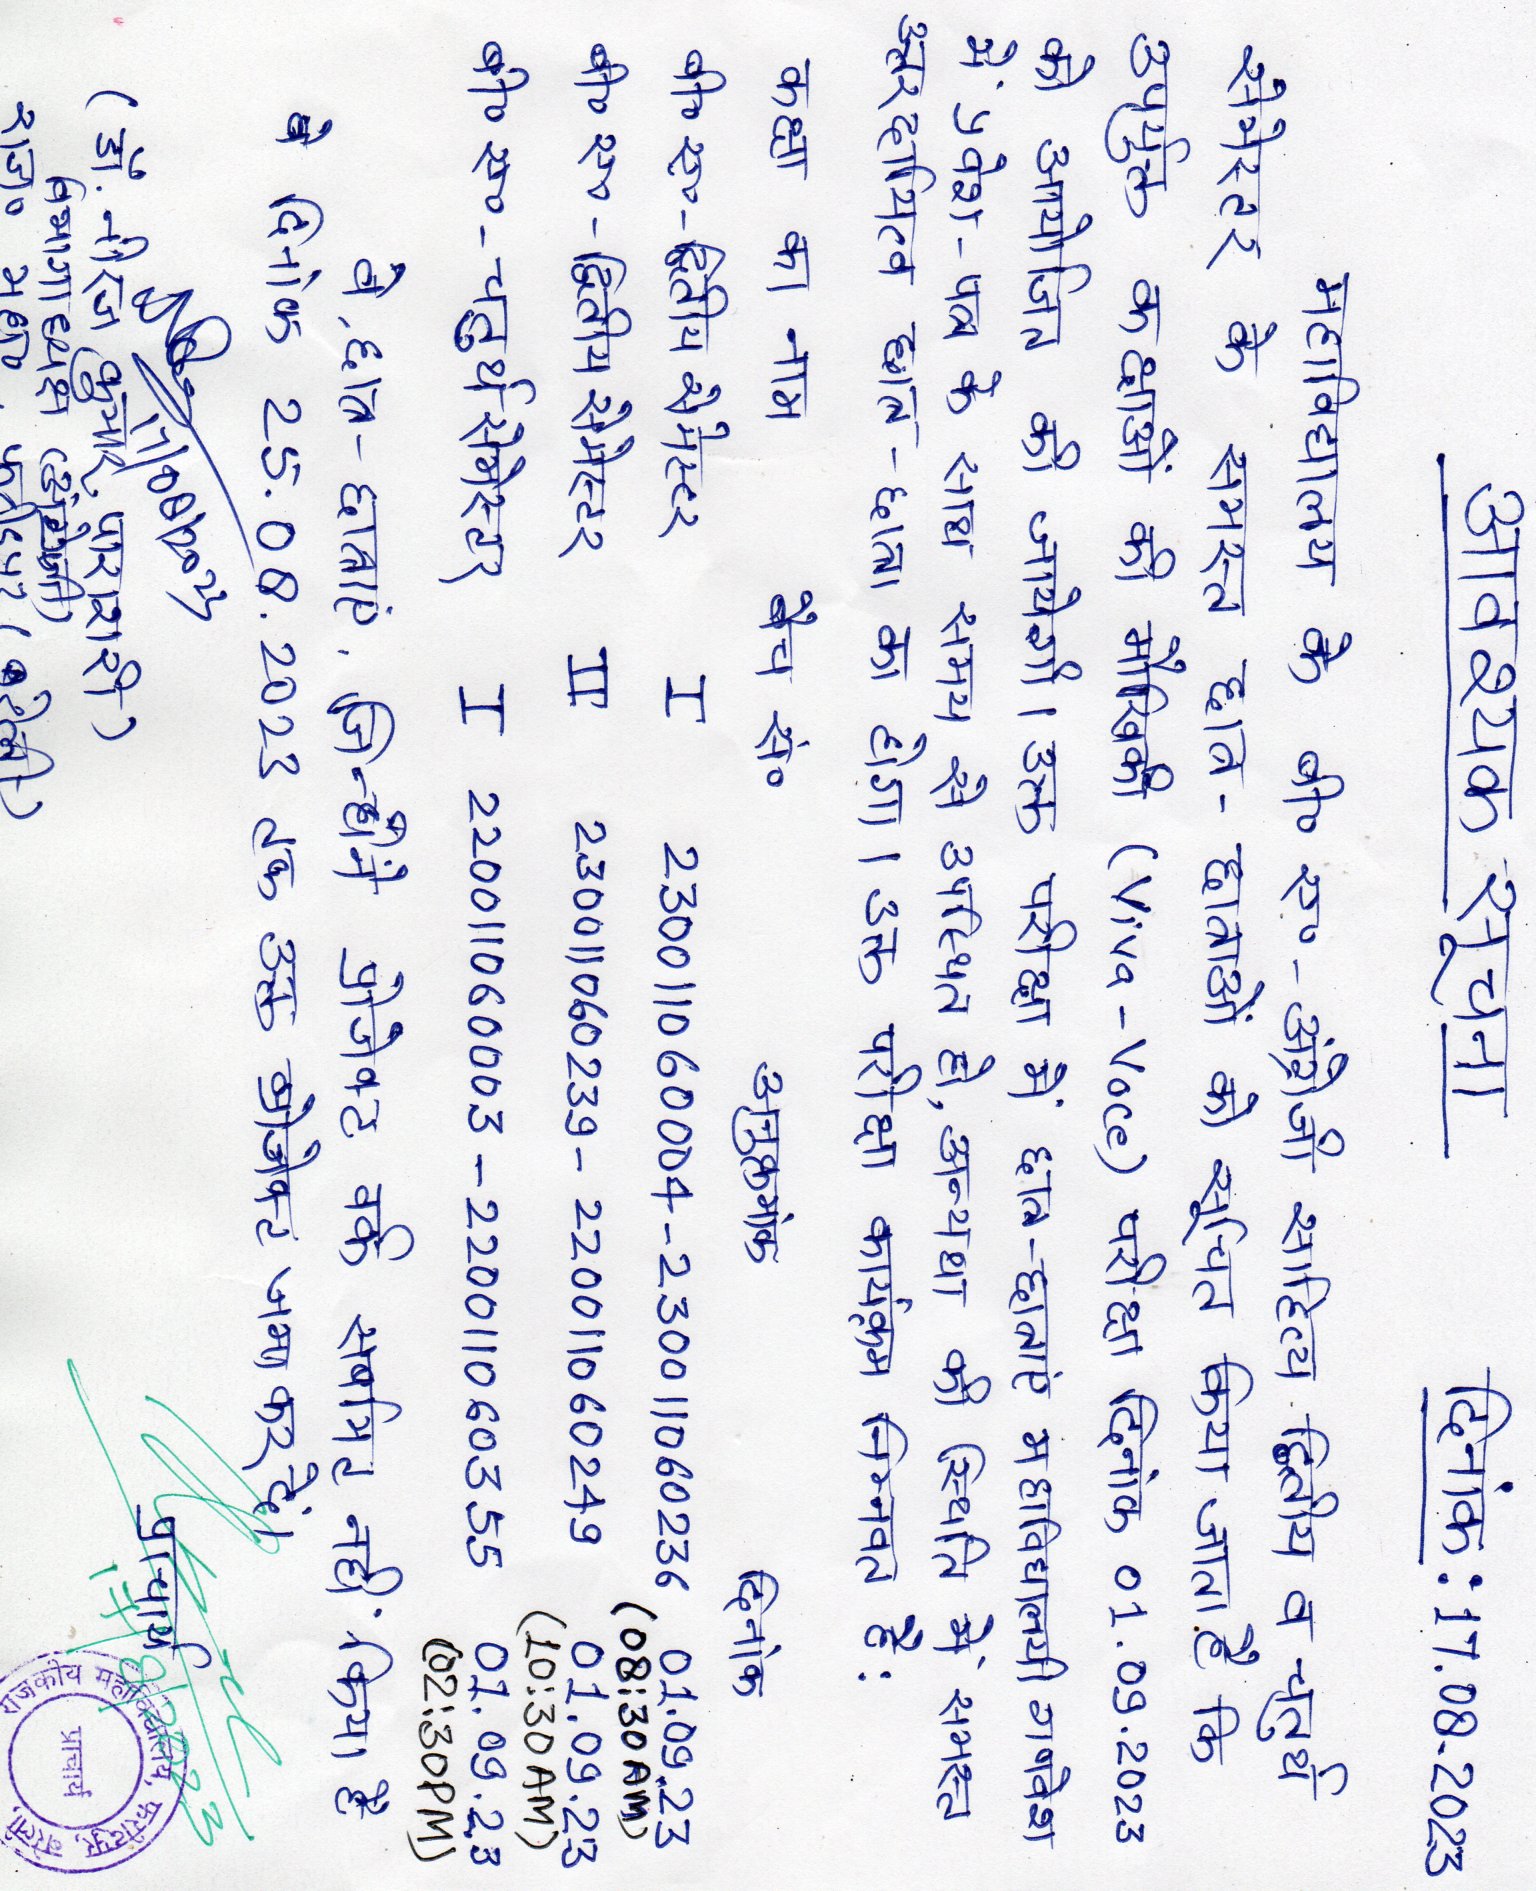 आवश्यक सूचना
दिनांक: 17.08.2023
महाविद्यालय के बी० ए० - अंग्रेजी साहित्य द्वितीय व चतुर्थ
सेमेस्टर के समस्त छात्र - छात्राओं को सूचित किया जाता है कि
उपर्युक्त कक्षाओं की मौखिकी (Viva - Voce) परीक्षा दिनांक 01.09.2023
को आयोजित की जायेगी। उक्त परीक्षा में छात्र - छात्राएं महाविद्यालयी गणवेश
में प्रवेश - पत्र के साथ समय से उपस्थित हों, अन्यथा की स्थिति में समस्त
उत्तरदायित्व छात्र - छात्रा का होगा। उक्त परीक्षा कार्यक्रम निम्नवत है:
कक्षा का नाम बैच सं० अनुक्रमांक दिनांक
बी० ए० - द्वितीय सेमेस्टर I 230011060004 - 230011060236 01.09.23
(08:30AM)
बी० ए० - द्वितीय सेमेस्टर II 230011060239 - 220011060249 01.09.23
(10:30AM)
बी० ए० - चतुर्थ सेमेस्टर I 220011060003 - 220011060355 01.09.23
(02:30PM)
वे छात्र - छात्राएं जिन्होंने प्रोजेक्ट वर्क सबमिट नहीं किया है
वे दिनांक 25.08.2023 तक उक्त प्रोजेक्ट जमा कर दें।
17/08/2023
(डॉ. नीरज कुमार पाराशरी)
विभागाध्यक्ष (अंग्रेजी)
राज० महा० फरीदपुर (बरेली)
प्राचार्य
17/8/2023
राजकीय महाविद्यालय, फरीदपुर, बरेली
प्राचार्य